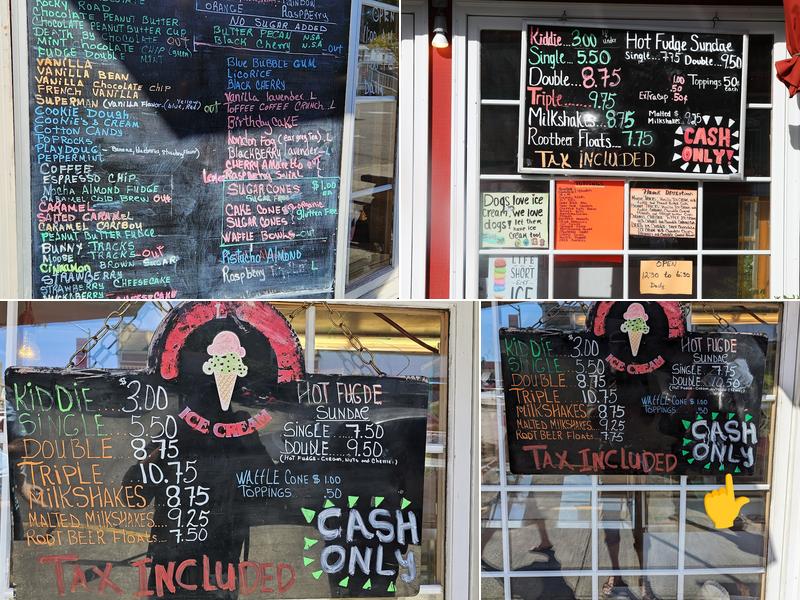 ROAD
CHOCOLATE PEANUT BUTTER
CHOCOLATE PEANUT BUTTER CUP
DEATH By CHOCOLATE OUT
MINT Chocolate CHIP (green)
FUDGE Double MINT
VANILLA
VANILLA BEAN
VANILLA Chocolate CHIP
FRENCH VANILLA
SUPERMAN
COOKIE Dough
COOKIES & CREAM
COTTON CANDY
POPROCKS
PLAY DOUGH
PEPPERMINT
COFFEE
ESPRESSO CHIP
Mocha ALMOND FUDGE
CARAMEL COLD BREW OUT
CARAMEL
SALTED CARAMEL
CARAMEL CARIBOU
PEANUT BUTTER FUDGE
BUNNY TRACKS
MOOSE TRACKS OUT
Cinnamon BROWN SUGAR
STRAWBERRY
STRAWBERRY CHEESECAKE
ORANGE
RAINBOW
RASPBERRY
NO SUGAR ADDED
BUTTER PECAN NSA
Black Cherry N.S.A. out
Blue BUBBLE GUM
LICORICE
BLACK CHERRY
out Vanilla lavender L
TOFFEE COFFEE CRUNCH L
Birthday CAKE
London Fog (earl grey tea) L
Blackberry lavender L
CHERRY AMaretto L
Raspberry Swirl
SUGARCONES $1.00 ea
SUGAR FREE
CAKE CONES organic
SUGAR CONES gluten free
WAFFLE Bowls out
Pistachio ALMOND
Raspberry L
OPEN
Kiddie...3.00
Single..5.50
Double...8.75
Triple.....9.75
Milkshakes...8.75
Rootbeer Floats...7.75
TAX iNCLUDED
Hot Fudge Sundae
Single..7.75 Double..9.50
Toppings 50¢ each
Extra cup .50¢
Malted & Milkshake 9.25
CASH ONLY!
Dogs love ice cream, we love dogs! let them have ice cream too!
LIFE SHORT ICE
OPEN
12:30 to 6:30
Daily
ICE CREAM
KiDDIE....$3.00
SINGLE...5.50
DOUBLE...8.75
TRIPLE.....10.75
MILKSHAKES...8.75
MALTED MILKSHAKES....9.25
ROOT BEER Floats...7.50
TAX INCLUDED
HOT FUGDE
SUNDAE
SINGLE...7.50
DOUBLE....9.50
(Hot Fudge-Cream, Nuts and Cherry)
WAFFLE CONE $1.00
TOPPINGS...50
CASH ONLY
ICE CREAM
KIDDIE...$3.00
SINGLE...5.50
DOUBLE...8.75
TRIPLE....10.75
MILKSHAKES...8.75
MALTED MILKSHAKES...9.25
ROOT BEER Floats...7.75
TAX INCLUDED
HOT FUGDE
SUNDAE
SINGLE...7.75
DOUBLE...10.50
WAFFLE CONE $1.00
TOPPINGS...50
CASH ONLY